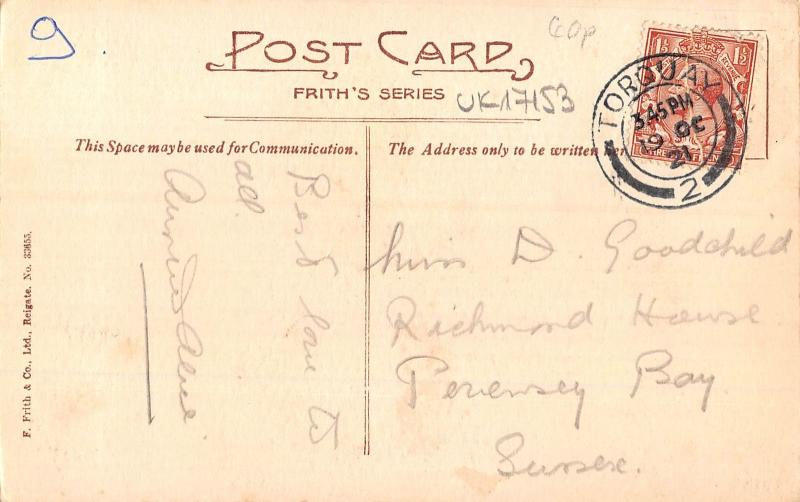 9
60p
POST CARD
FRITH'S SERIES
UK-17153
1½ 1½
TORQUAY
3.45 PM
19 OC
21
2
This Space may be used for Communication.
The Address only to be written
Best love to
all
Auntie Alice
Miss D. Goodchild
Richmond House
Pevensey Bay
Sussex.
F. Frith & Co., Ltd., Reigate. No. 33655.